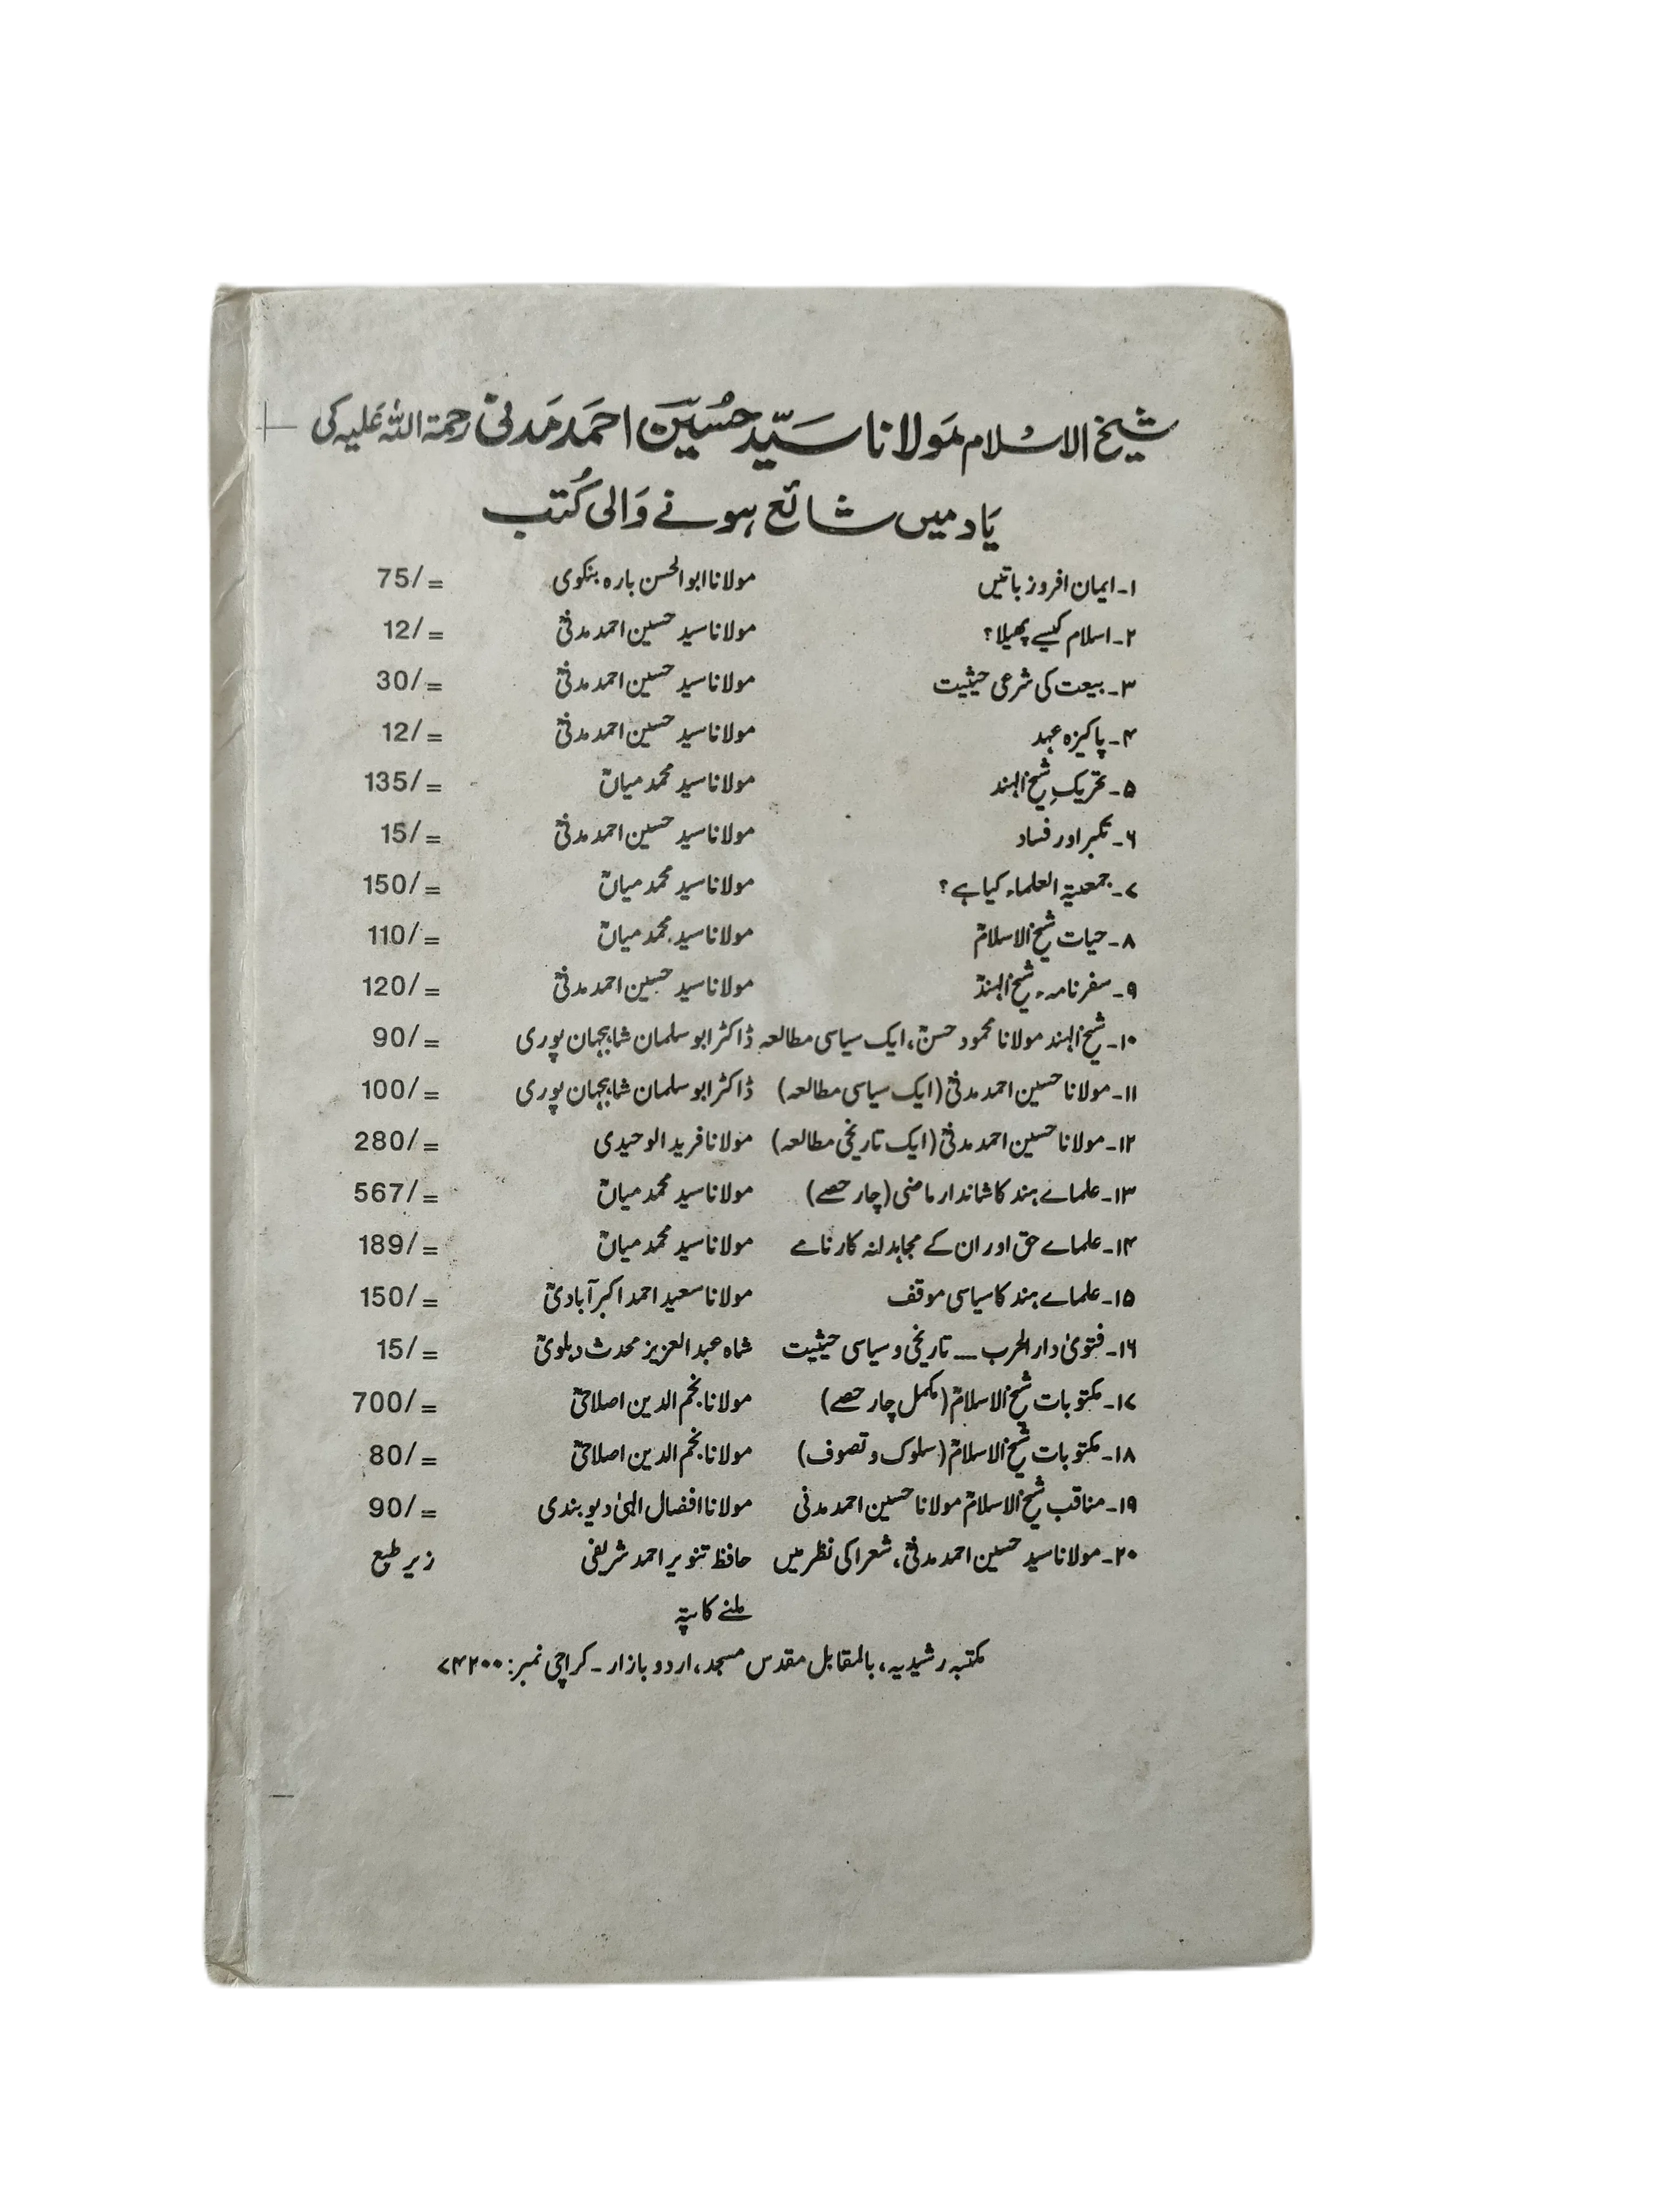 شیخ الاسلام مولانا سیّد حُسین احمد مدنیؒ رحمۃ اللہ علیہ کی
یاد میں شائع ہونے والی کُتب
۱۔ ایمان افروز باتیں مولانا ابوالحسن بارہ بنکوی 75/=
۲۔ اسلام کیسے پھیلا؟ مولانا سید حسین احمد مدنیؒ 12/=
۳۔ بیعت کی شرعی حیثیت مولانا سید حسین احمد مدنیؒ 30/=
۴۔ پاکیزہ عہد مولانا سید حسین احمد مدنیؒ 12/=
۵۔ تحریکِ شیخ الہند مولانا سید محمد میاںؒ 135/=
۶۔ تکبر اور فساد مولانا سید حسین احمد مدنیؒ 15/=
۷۔ جمعیۃ العلماء کیا ہے؟ مولانا سید محمد میاںؒ 150/=
۸۔ حیات شیخ الاسلامؒ مولانا سید محمد میاںؒ 110/=
۹۔ سفرنامہء شیخ الہندؒ مولانا سید حسین احمد مدنیؒ 120/=
۱۰۔ شیخ الہند مولانا محمود حسنؒ، ایک سیاسی مطالعہ ڈاکٹر ابو سلمان شاہجہان پوری 90/=
۱۱۔ مولانا حسین احمد مدنیؒ (ایک سیاسی مطالعہ) ڈاکٹر ابو سلمان شاہجہان پوری 100/=
۱۲۔ مولانا حسین احمد مدنیؒ (ایک تاریخی مطالعہ) مولانا فرید الوحیدی 280/=
۱۳۔ علماے ہند کا شاندار ماضی (چار حصے) مولانا سید محمد میاںؒ 567/=
۱۴۔ علماے حق اور ان کے مجاہدانہ کارنامے مولانا سید محمد میاںؒ 189/=
۱۵۔ علماے ہند کا سیاسی موقف مولانا سعید احمد اکبر آبادیؒ 150/=
۱۶۔ فتویٰ دارالحرب ــ تاریخی و سیاسی حیثیت شاہ عبدالعزیز محدث دہلویؒ 15/=
۱۷۔ مکتوبات شیخ الاسلامؒ (مکمل چار حصے) مولانا نجم الدین اصلاحیؒ 700/=
۱۸۔ مکتوبات شیخ الاسلامؒ (سلوک و تصوف) مولانا نجم الدین اصلاحیؒ 80/=
۱۹۔ مناقب شیخ الاسلامؒ مولانا حسین احمد مدنی مولانا افضال الہیٰ دیوبندی 90/=
۲۰۔ مولانا سید حسین احمد مدنیؒ، شعرا کی نظر میں حافظ تنویر احمد شریفی زیر طبع
ملنے کا پتہ
مکتبہ رشیدیہ، بالمقابل مقدس مسجد، اردو بازار ۔ کراچی نمبر: ۷۴۲۰۰